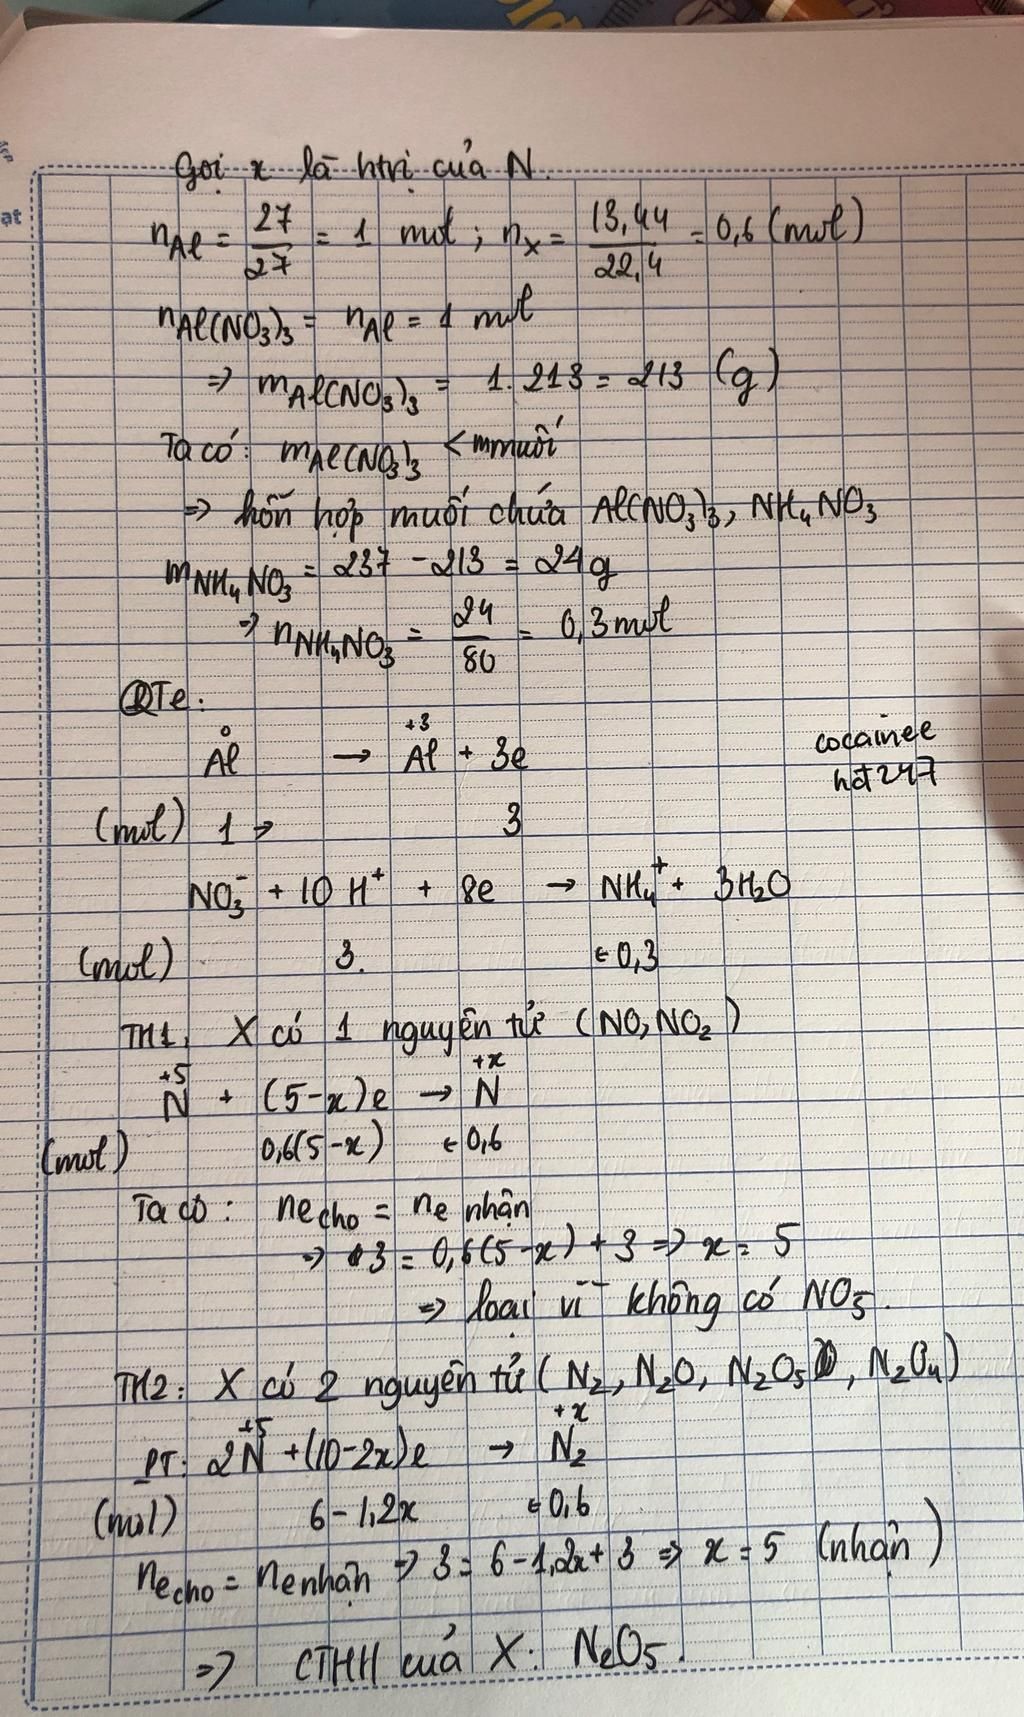 Gọi x là htrị của N.
n_Al = 27/27 = 1 mol ; n_X = 13,44/22,4 = 0,6 (mol)
n_Al(NO₃)₃ = n_Al = 1 mol
=> m_Al(NO₃)₃ = 1.213 = 213 (g)
Ta có: m_Al(NO₃)₃ < mmuối
=> hỗn hợp muối chứa Al(NO₃)₃, NH₄NO₃
m_NH₄NO₃ = 237 - 213 = 24g
=> n_NH₄NO₃ = 24/80 = 0,3 mol
QTe:
Al⁰ → Al⁺³ + 3e
cocainee
hót247
(mol) 1 → 3
NO₃⁻ + 10H⁺ + 8e → NH₄⁺ + 3H₂O
(mol) 3. ← 0,3
TH1: X có 1 nguyên tử (NO, NO₂)
N⁺⁵ + (5-x)e → N⁺ˣ
(mol) 0,6(5-x) ← 0,6
Ta có: ne cho = ne nhận
=> 3 = 0,6(5-x) + 3 => x = 5
=> loại vì không có NO₅.
TH2: X có 2 nguyên tử (N₂, N₂O, N₂O₅, N₂O₄)
PT: 2N⁺⁵ + (10-2x)e → N₂⁺ˣ
(mol) 6-1,2x ← 0,6
ne cho = ne nhận => 3 = 6-1,2x + 3 => x = 5 (nhận)
=> CTHH của X: N₂O₅.